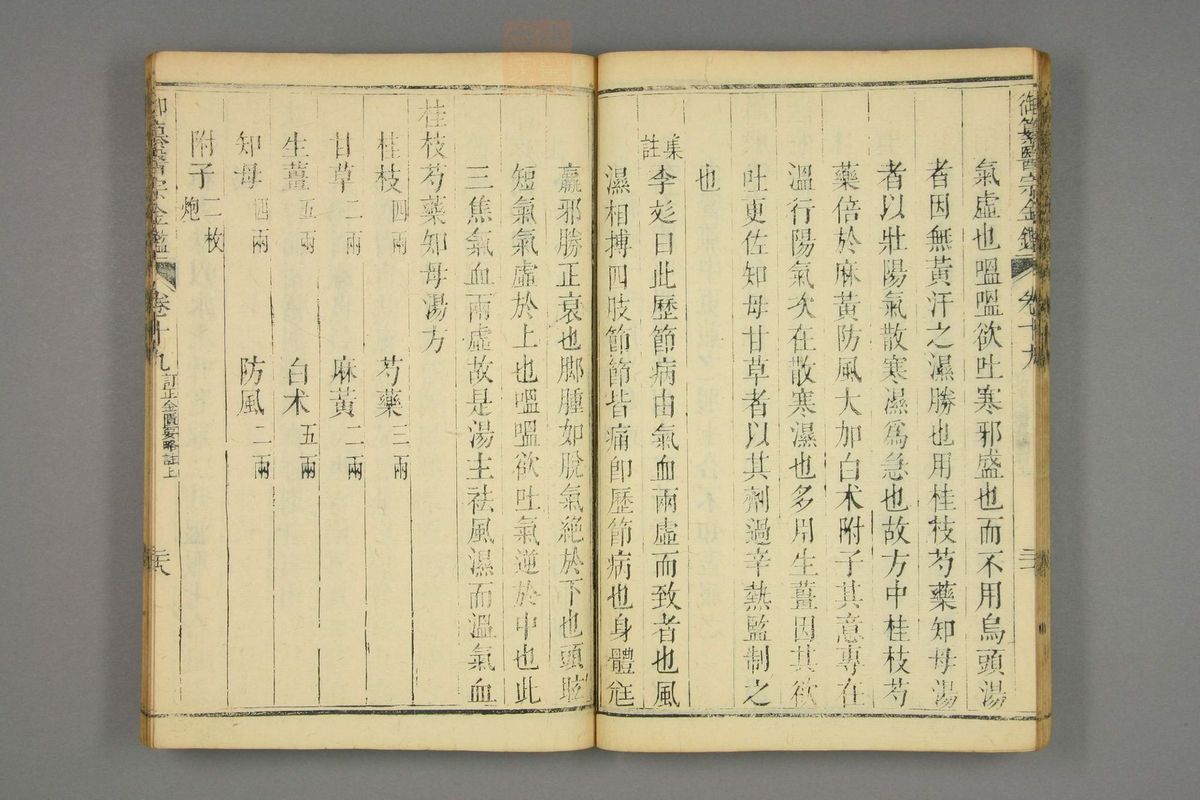 御纂醫宗金鑑
卷十九
氣虛也嗢嗢欲吐寒邪盛也而不用烏頭湯
者因無黃汗之濕勝也用桂枝芍藥知母湯
者以壯陽氣散寒濕爲急也故方中桂枝芍
藥倍於麻黃防風大加白术附子其意專在
溫行陽氣次在散寒濕也多用生薑因其欲
吐更佐知母甘草者以其劑過辛熱監制之
也
集註
李彣曰此歷節病由氣血兩虛而致者也風
濕相搏四肢節節皆痛卽歷節病也身體尫
羸邪勝正衰也脚腫如脫氣絕於下也頭眩
短氣氣虛於上也嗢嗢欲吐氣逆於中也此
三焦氣血兩虛故是湯主祛風濕而溫氣血
桂枝芍藥知母湯方
桂枝四兩 芍藥三兩
甘草二兩 麻黃二兩
生薑五兩 白术五兩
知母四兩 防風二兩
附子二枚炮
御纂醫宗金鑑
卷十九 訂正金匱要略註上